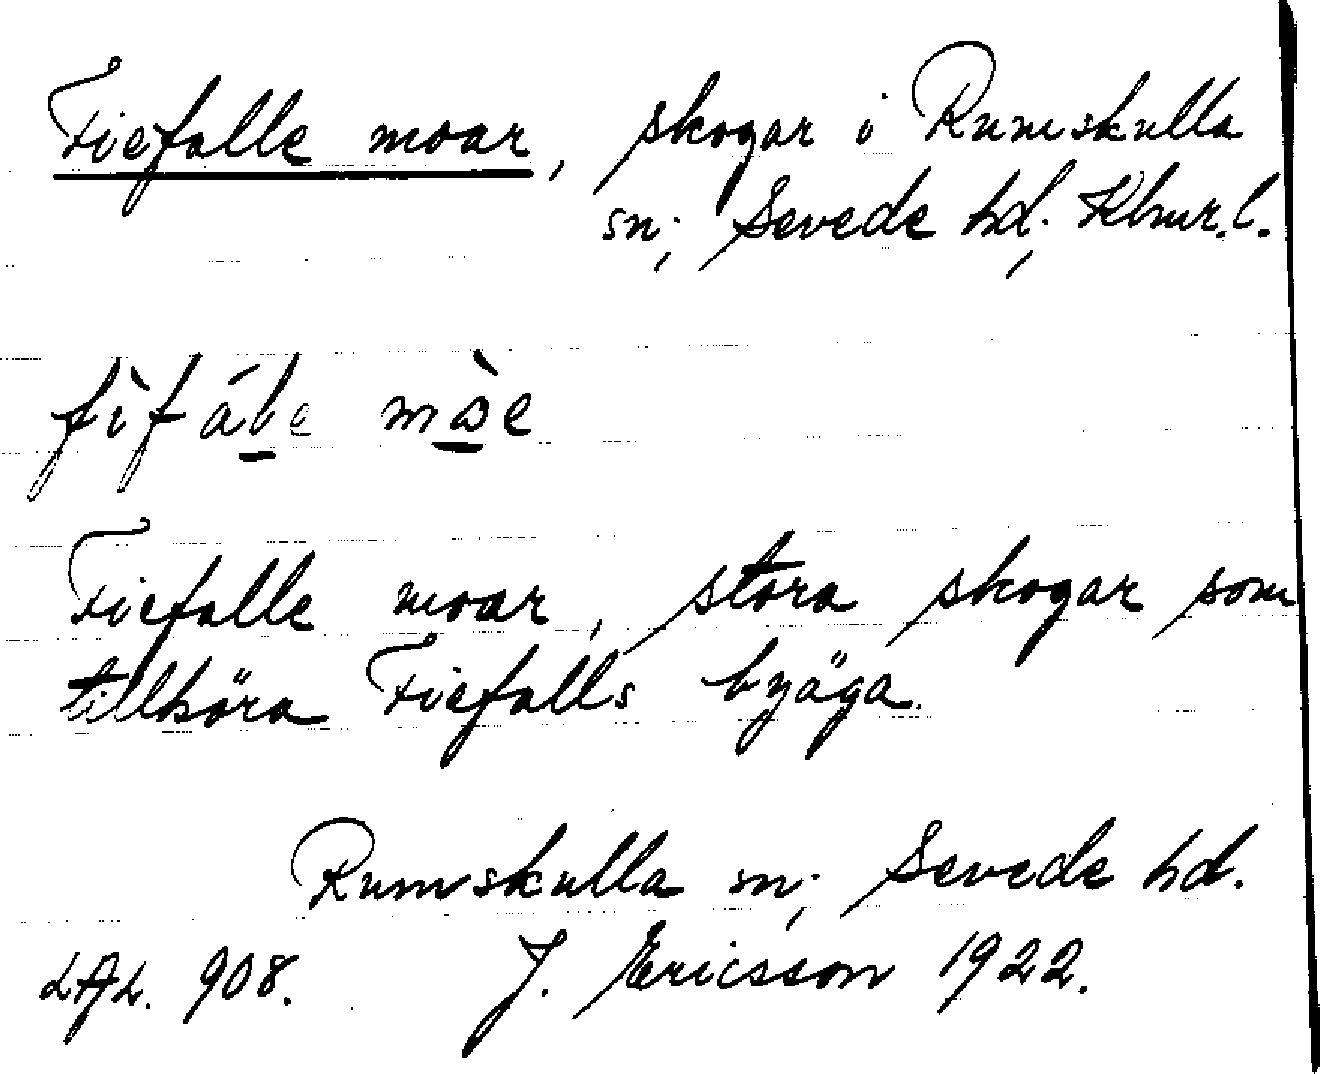 Fiefalle moar, skogar i Rumskulla
sn., Sevede hd., Klmr. l.
fìfále
Fiefalle moar, stora skogar som
tillhöra Fiefalls byäga.
Rumskulla sn., Sevede hd.
908. J. Ericsson 1922.